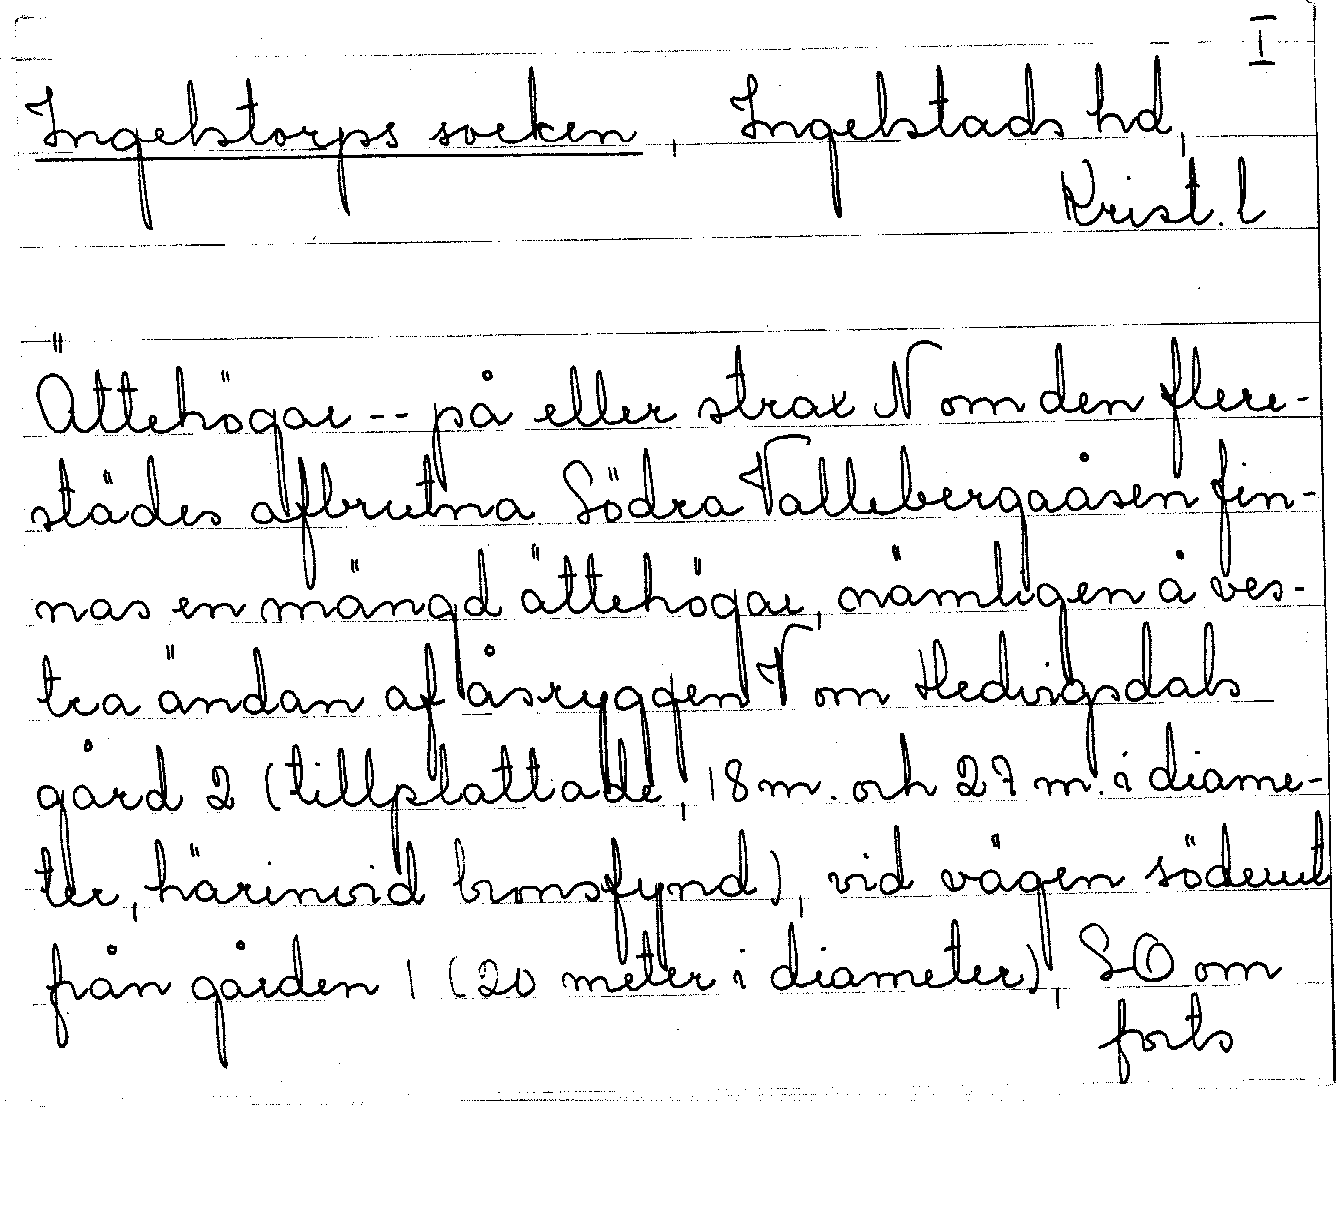 I
Ingelstorps socken, Ingelstads hd,
Krist. l
Ättehögar -- på eller strax N om den flere-
städes afbrutna Södra Vallebergaåsen fin-
nas en mängd ättehögar, nämligen å ves-
tra ändan af åsryggen V om Hedvigsdals
gård 2 (tillplattade, 18 m. och 27 m. i diame-
ter, härinvid bronsfynd), vid vägen söderut
från gården 1 (20 meter i diameter), SO om
forts